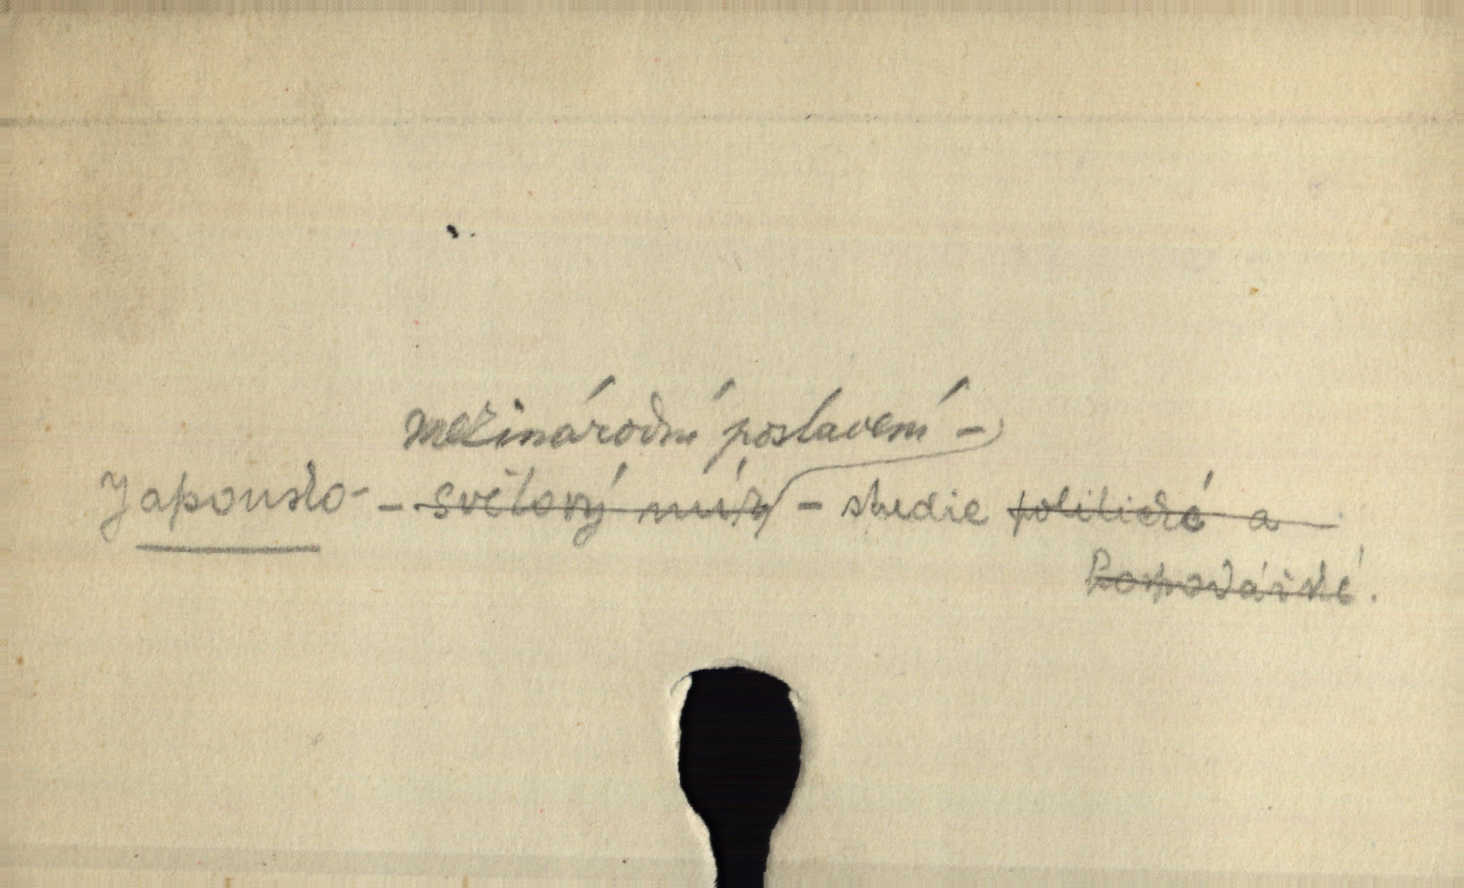 mezinárodní postavení -
Japonsko - světový mír - studie politické a
hospodářské.